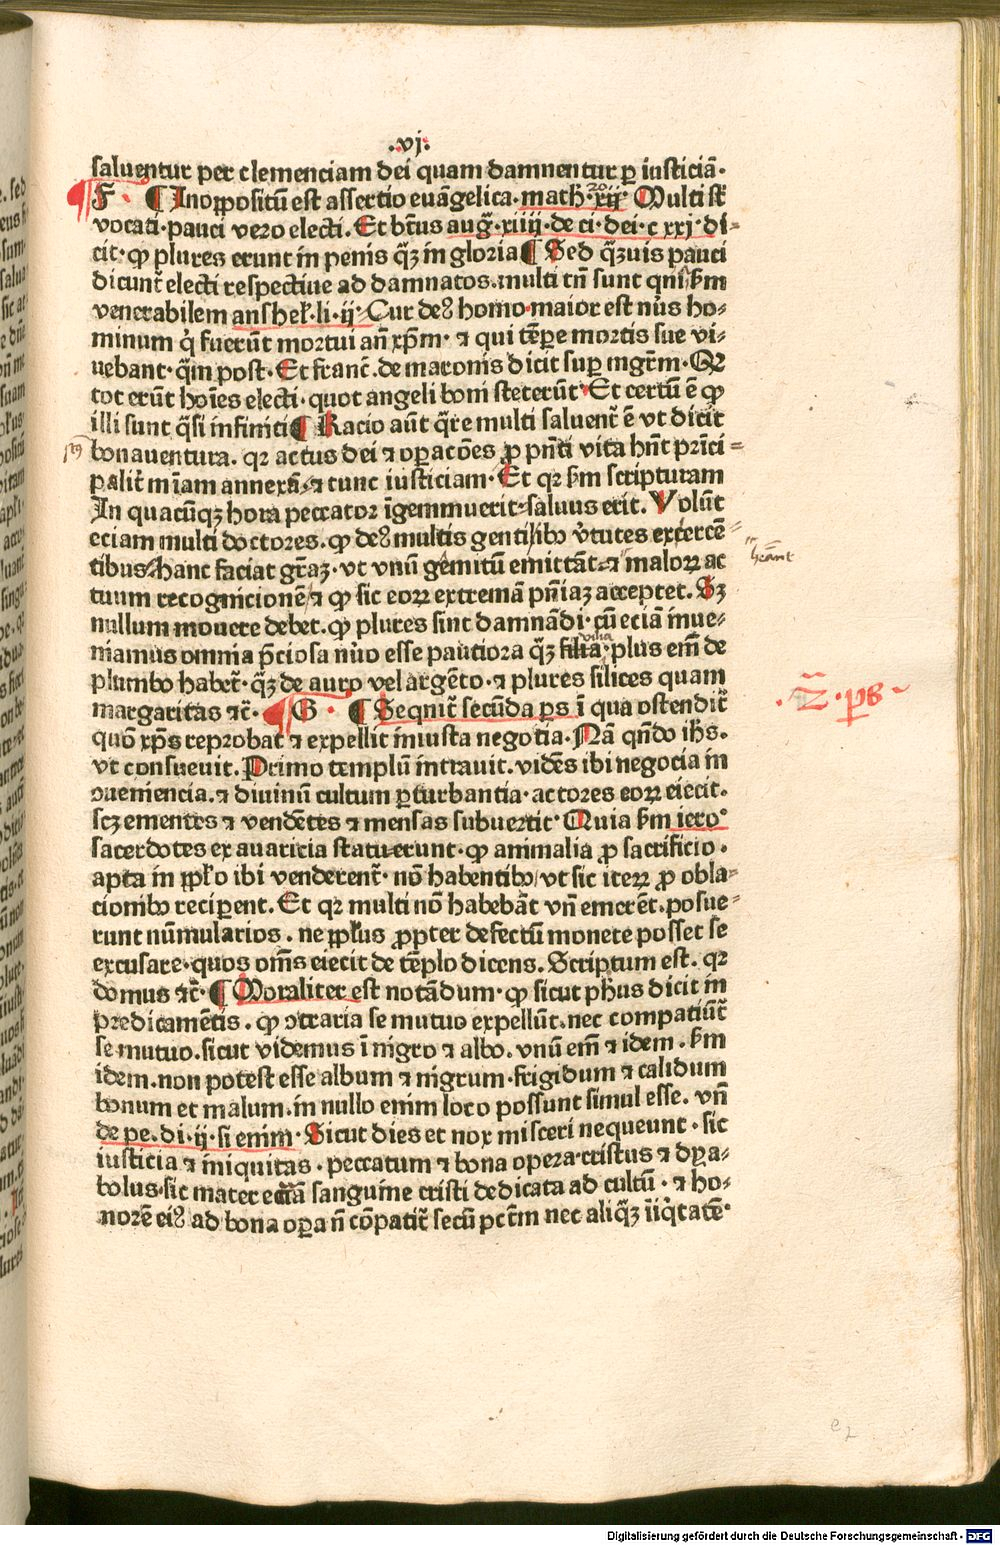 .vj.
saluentur per clemenciam dei quam damnentur ꝑ iusticiā·
F · ¶ Inoꝓpositū est assertio euāgelica· math̄ 20 xij Multi sūt
vocati·pauci vero electi. Et btūs aug̃·xiiij·de ci·dei·c xxj·di⸗
cit·ꝙ plures erunt in penis q̄ꝫ in gloria ¶ Sed q̄ꝫuis pauci
dicunt̄ electi respectiue ad damnatos.multi tn̄ sunt qm̄ scd̄m
venerabilem anshel̄·li·ij· Cur deꝰ homo·maior est nūs ho⸗
minum q̇ fuerūt mortui an̄ xp̄m· ⁊ qui tēꝑe mortis sue vi⸗
uebant· q̄m post· Et franc̄. de maronis dicit suꝑ mgr̄m· Qꝛ
tot erūt hoīes electi· quot angeli boni steterūt· Et certū ē ꝙ
illi sunt q̄si infiniti ¶ Racio aūt q̄re multi saluent̄ ē vt dicit
bonauentura. qꝛ actus dei ⁊ oꝑacōes ꝓ pn̄ti vita hn̄t prīci⸗
palit̄ mīam annexā·⁊ tunc iusticiam· Et qꝛ scd̄m scripturam
In quacūqꝫ hora peccator īgemmuerit·saluus erit. Volūt
eciam multi doctores. ꝙ deꝰ multis gentilibꝰ v̇tutes excercē⸗
tibus hanc faciat gr̄aꝫ· vt vnū gemitū emittāt·⁊ maloꝝ ac
tuum recognicionē ⁊ ꝙ sic eoꝝ extremā pn̄iaꝫ acceptet. Sꝫ
nullum mouere debet. ꝙ plures sint damnādi· cū eciā inue⸗
niamus omnia p̄ciosa nūo esse pauciora q̄ꝫ filia vilia· plus em̄ de
plumbo habet̄· q̄ꝫ de auro vel argēto·⁊ plures silices quam
margaritas ⁊c̄· G · ¶ Seqnit̄ secūda ꝑs ī qua ostendit̄
quō xp̄s reprobat ⁊ expellit iniusta negotia· Nā qn̄do ihs̄.
vt consueuit. Primo templū intrauit. vidēs ibi negocia in
ↄueniencia. ⁊ diuinū cultum ꝑturbantia· actores eoꝝ eiecit.
scꝫ ementes ⁊ vendētes ⁊ mensas subuertit· Quia scd̄m ieroº
sacerdotes ex auaricia statuerunt· ꝙ animalia ꝓ sacrificio .
apta in ꝓpl̄o ibi venderent̄· nō habentibꝰ vt sic iteꝝ ꝓ obla⸗
cionibꝰ reciꝑent. Et qꝛ multi nō habebāt vn̄ emerēt. posue⸗
runt nūmularios . ne ꝓpl̄us ꝓpter defectū monete posset se
excusare· quos om̄s eiecit de tēplo dicens. Scriptum est. qꝛ
domus ⁊c̄· ¶ Moraliter est notādum· ꝙ sicut ph̄us dicit in
predicamētis . ꝙ ↄtraria se mutuo expellūt. nec compatiūt̄
se mutuo. sicut videmus ī nigro ⁊ albo. vnū em̄ ⁊ idem. scd̄m
idem. non potest esse album ⁊ nigrum· frigidum ⁊ calidum
bonum et malum. in nullo enim loco possunt simul esse. vn̄
de pe. di·ij·si enim· Sicut dies et nox misceri nequeunt · sic
iusticia ⁊ iniquitas · peccatum ⁊ bona opera·cristus ⁊ dya⸗
bolus·sic mater eccl̄ia sanguine cristi dedicata ad cultū · ⁊ ho⸗
norē eiꝰ ad bona oꝑa n̄ cōpatit̄ secū pctm̄ nec aliq̄ꝫ iīq̇tatē·
· 2̄ · ꝑs ·
e 2
Digitalisierung gefördert durch die Deutsche Forschungsgemeinschaft - DFG